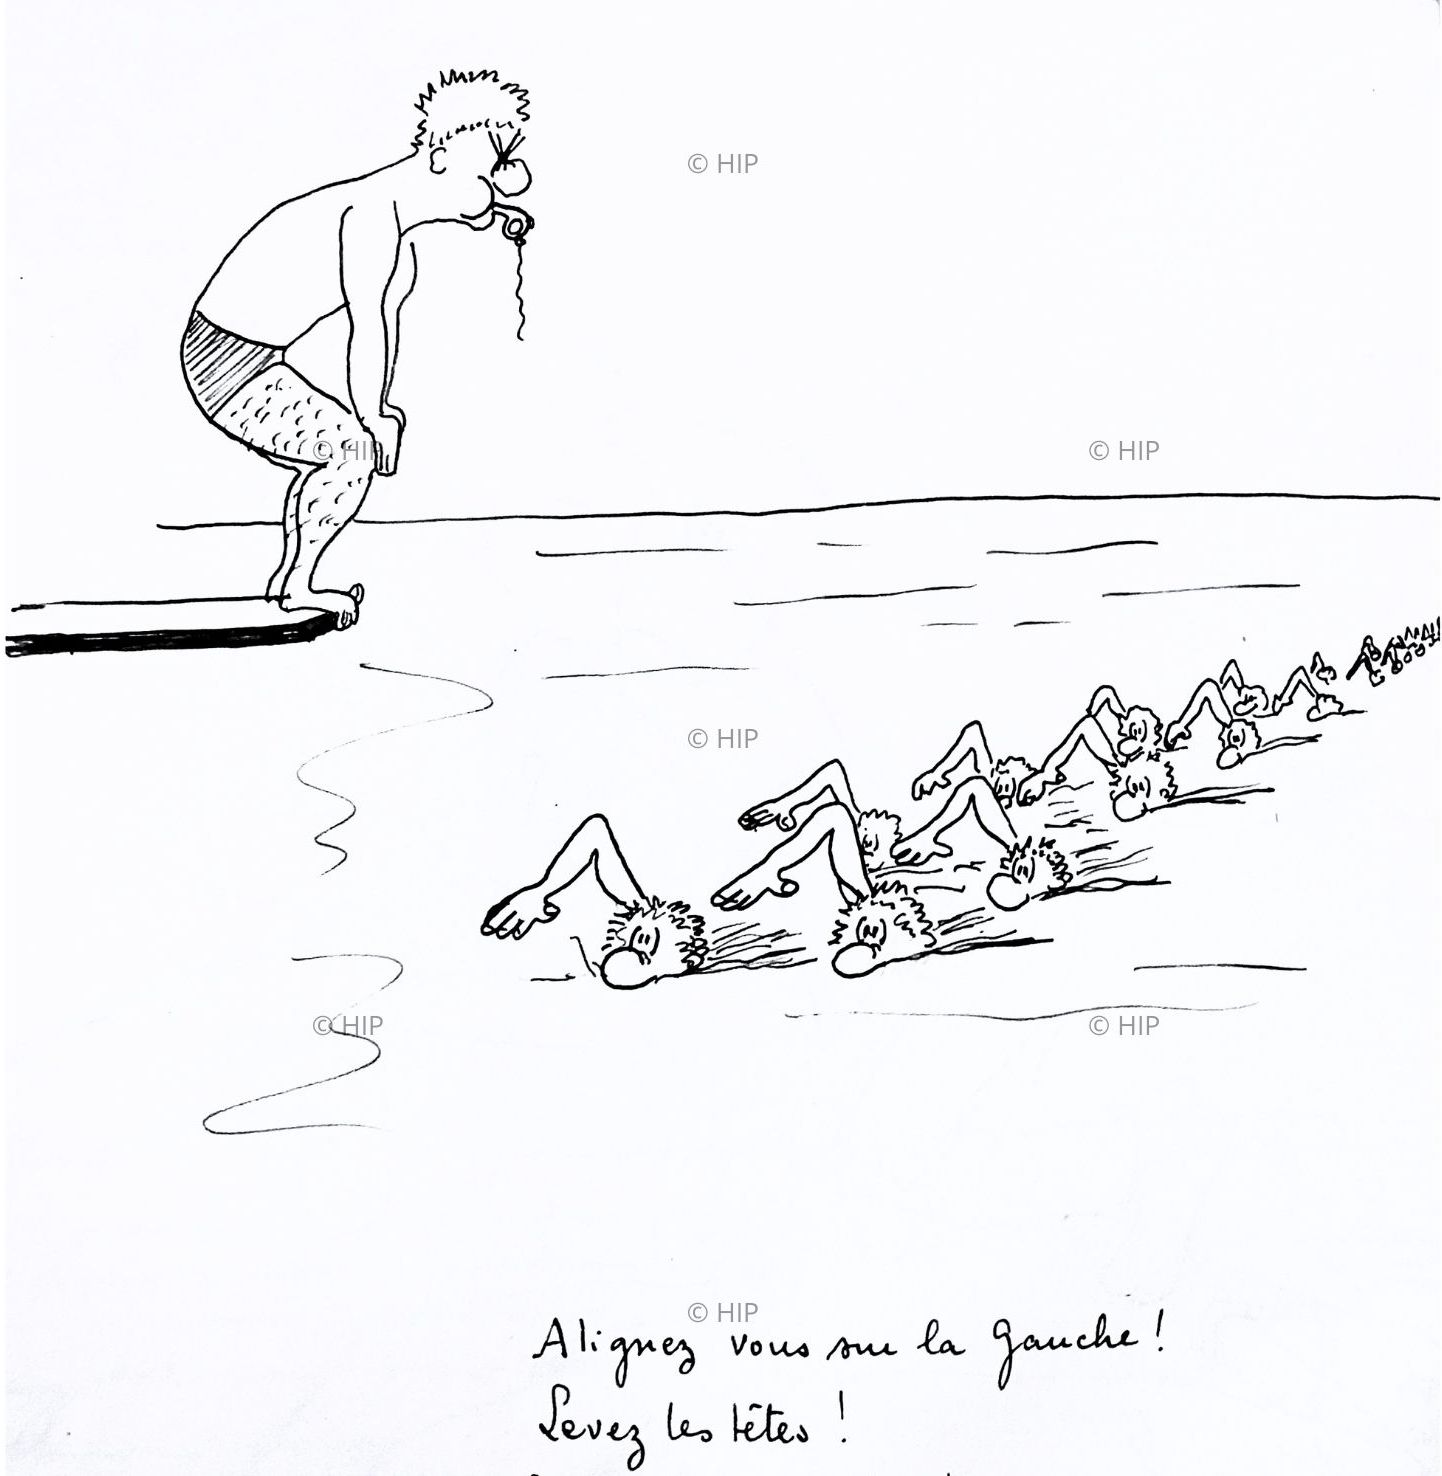 © HIP
© HIP
© HIP
© HIP
© HIP
© HIP
© HIP
Alignez vous sur la gauche !
Levez les têtes !